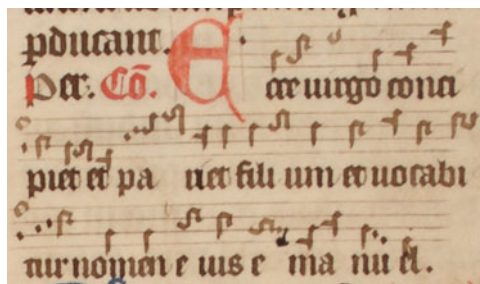 pducant.
Per. Cō. Ecce uirgo conci
piet et pa riet fili um et uocabi
tur nomen e ius e ma nu el.